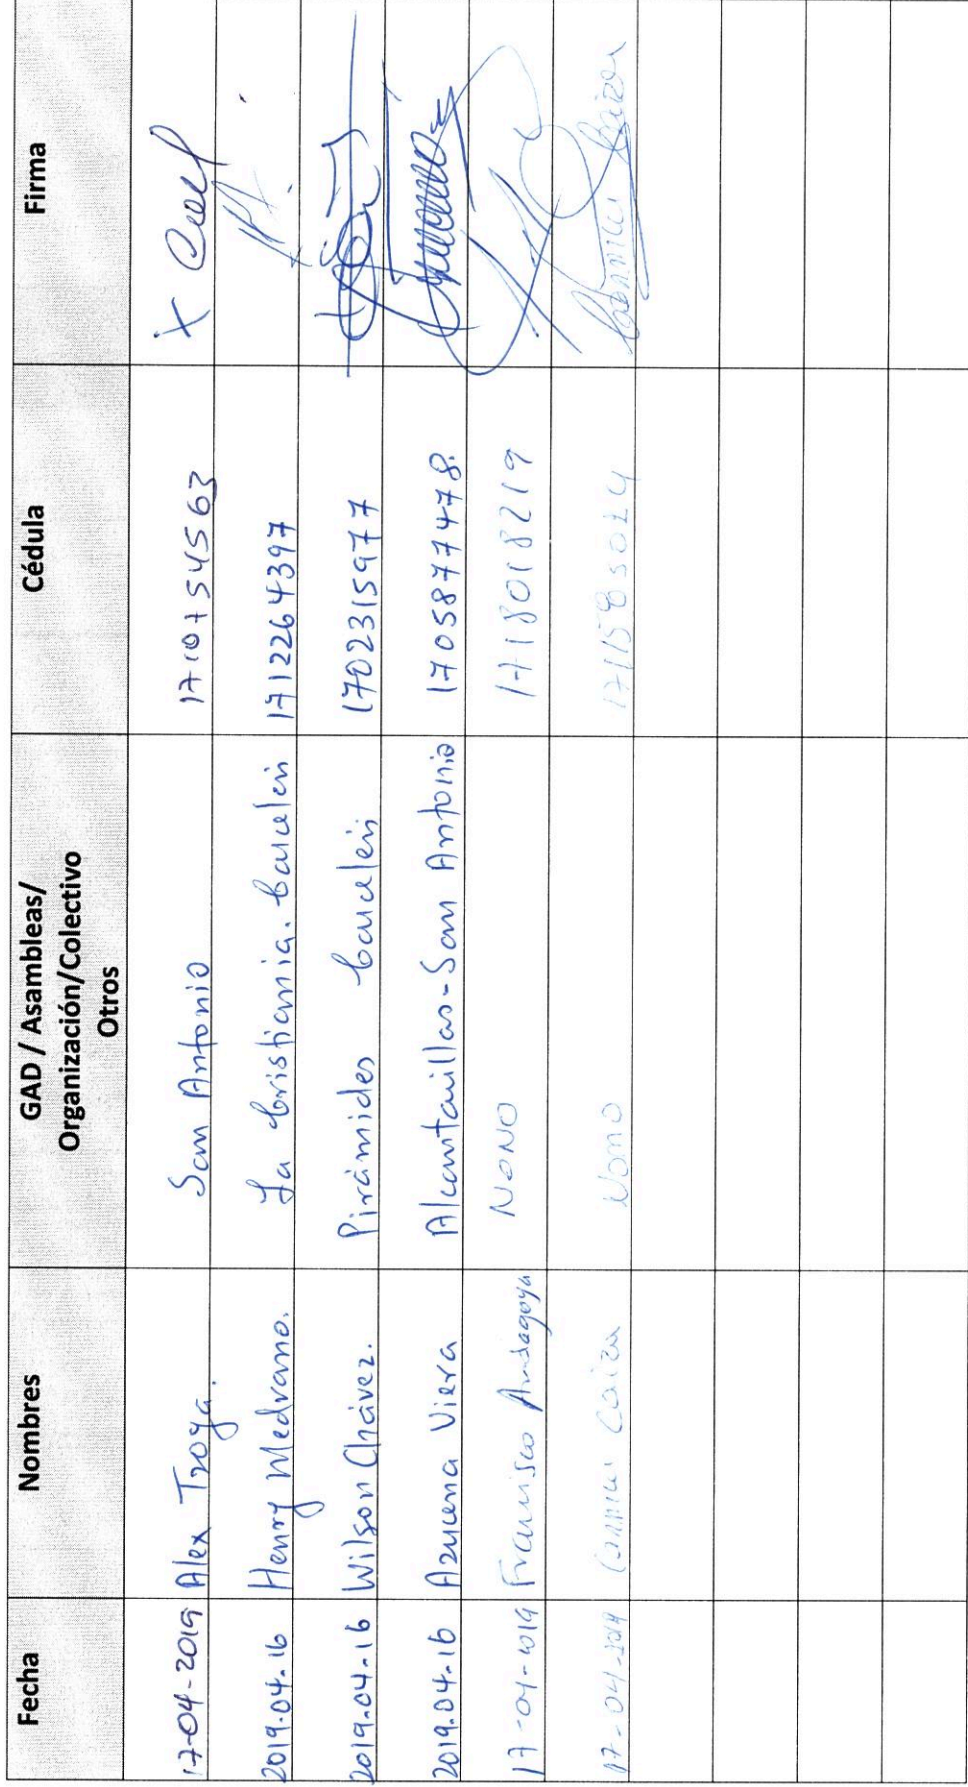 Fecha Nombres GAD / Asambleas/ Cédula Firma
Organización/Colectivo
Otros
17-04-2019 Alex Troya. San Antonio 1710754563
2019.04.16 Henry Medrano. La Cristianía. Carcelén 1712264397
2019.04.16 Wilson Chávez. Pirámides Carcelén 1702315977
2019.04.16 Azucena Viera Alcantarillas-San Antonio 1705877478.
17-04-2019 Francisco Andagoya NONO 1718018219
17-04-2019 Caiza Nono